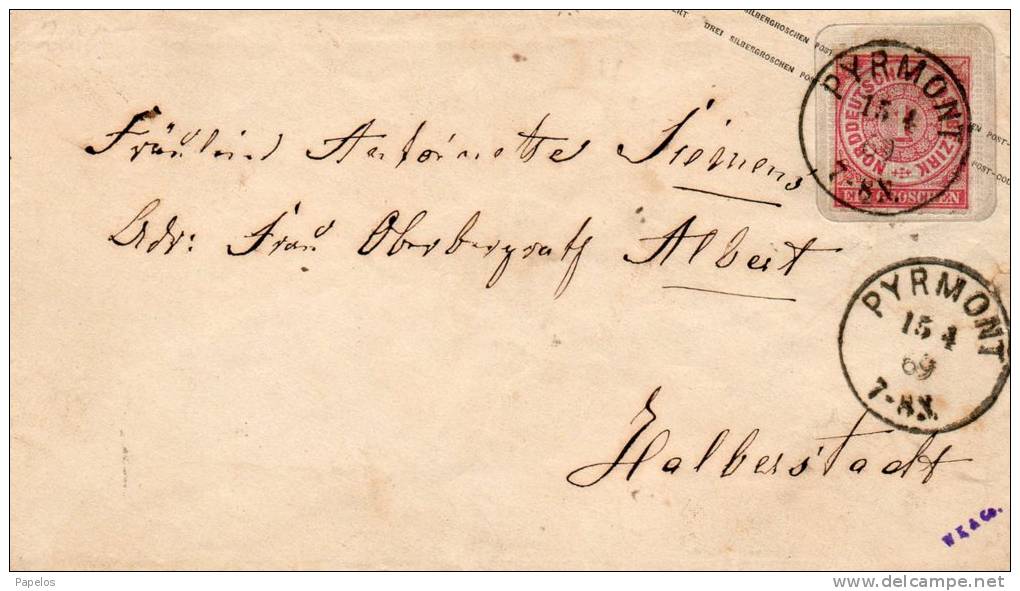 ERT DREI SILBERGROSCHEN POST-
SILBERGROSCHEN POST-
EN POST-
POST-COU
NORDDEUTSCHER POSTBEZIRK
1
EIN GROSCHEN
PYRMONT
15 4
69
7-8N.
Fräulein Antoinette Siemens,
Adr: Frau Oberbergrath Albert
Halberstadt
PYRMONT
15 4
69
7-8N.
W K & Co.
Papelos
www.delcampe.net